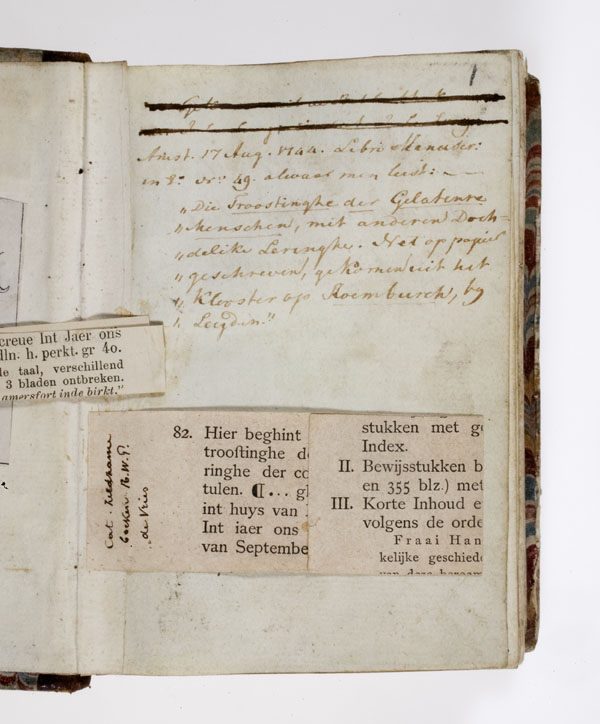 creue Int Jaer ons
dln. h. perkt. gr 4o.
le taal, verschillend
3 bladen ontbreken.
amersfort inde birkt."
1
Amst. 17 Aug. 1744. Libri Manuscr:
in 8º. Nrº. 49. alwaar men leest: —
„Die Troostinghe der Gelatenre
„Menschen, mit anderen Doch-
„delike Leringhe. Net op papier
„geschreven, gekomen uit het
„Klooster op Roemburch, by
„Leijden."
Cat. zeldzame
boeken R.W.P.
de Vries
82. Hier beghint
trooſtinghe d
ringhe der co
tulen. ¶... gh
int huys van
Int iaer ons
van Septembe
stukken met ge
Index.
II. Bewijsstukken b
en 355 blz.) met
III. Korte Inhoud e
volgens de orde
Fraai Han
kelijke geschied
van deze beroem